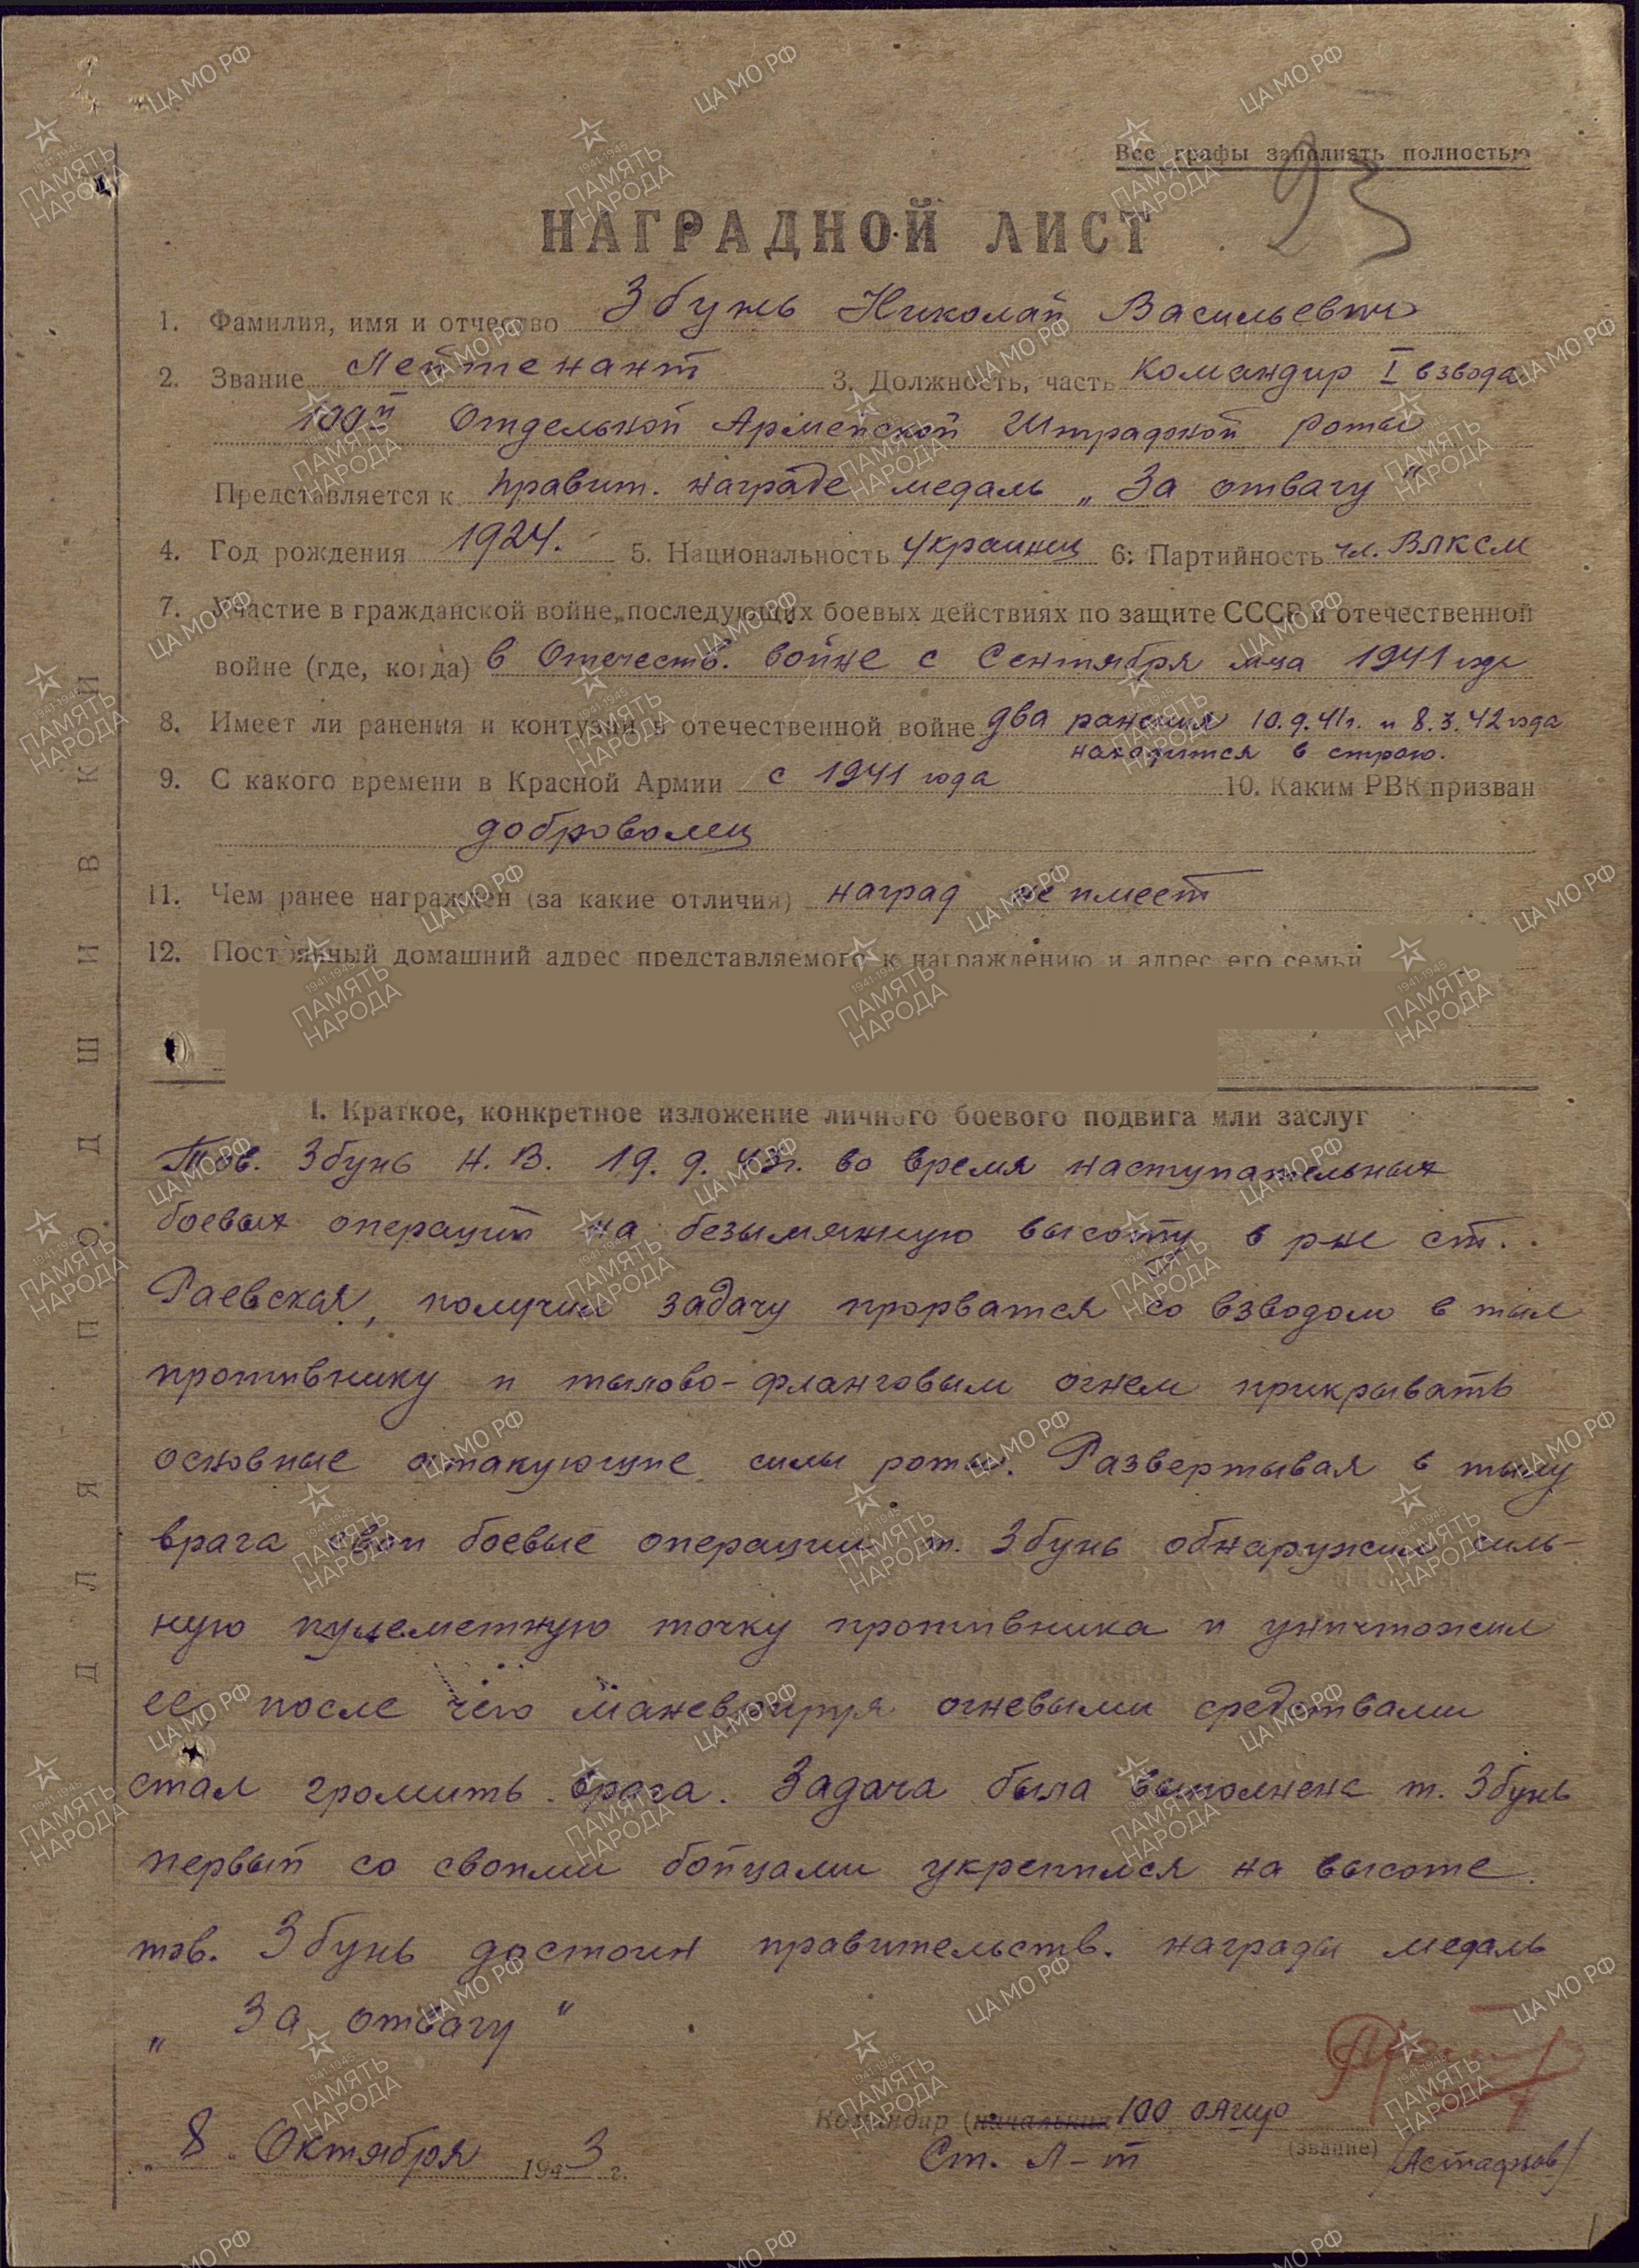 Все графы заполнять полностью
23
НАГРАДНОЙ ЛИСТ
1. Фамилия, имя и отчество Збунь Николай Васильевич
2. Звание Лейтенант 3. Должность, часть Командир I взвода
100й Отдельной Армейской Штрафной роты
Представляется к правит. награде медаль „За отвагу"
4. Год рождения 1924. 5. Национальность украинец 6. Партийность чл. ВЛКСМ
7. Участие в гражданской войне, последующих боевых действиях по защите СССР и отечественной
войне (где, когда) в Отечеств. войне с Сентября м-ца 1941 года
8. Имеет ли ранения и контузии в отечественной войне два ранения 10.9.41г. и 8.3.42 года
находится в строю.
9. С какого времени в Красной Армии с 1941 года 10. Каким РВК призван
доброволец
11. Чем ранее награжден (за какие отличия) наград не имеет
12. Постоянный домашний адрес представляемого к награждению и адрес его семьи
I. Краткое, конкретное изложение личного боевого подвига или заслуг
Тов. Збунь Н. В. 19. 9. 43г. во время наступательных
боевых операций на безымянную высоту в р-не ст.
Раевская, получил задачу прорватся со взводом в тыл
противнику и тылово-фланговым огнем прикрывать
основные атакующие силы роты. Развертывая в тылу
врага свои боевые операции т. Збунь обнаружил силь-
ную пулеметную точку противника и уничтожил
ее, после чего маневрируя огневыми средствами
стал громить врага. Задача была выполнена т. Збунь
первый со своими бойцами укрепился на высоте.
тов. Збунь достоин правительств. награды медаль
„За отвагу"
Командир (начальник 100 ОАШР
„8" Октября 1943 г.
Ст. Л-т (звание) /Астафьов/
ДЛЯ ПОДШИВКИ